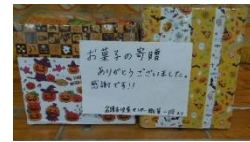 お菓子の寄贈
ありがとうございました。
感謝です!!